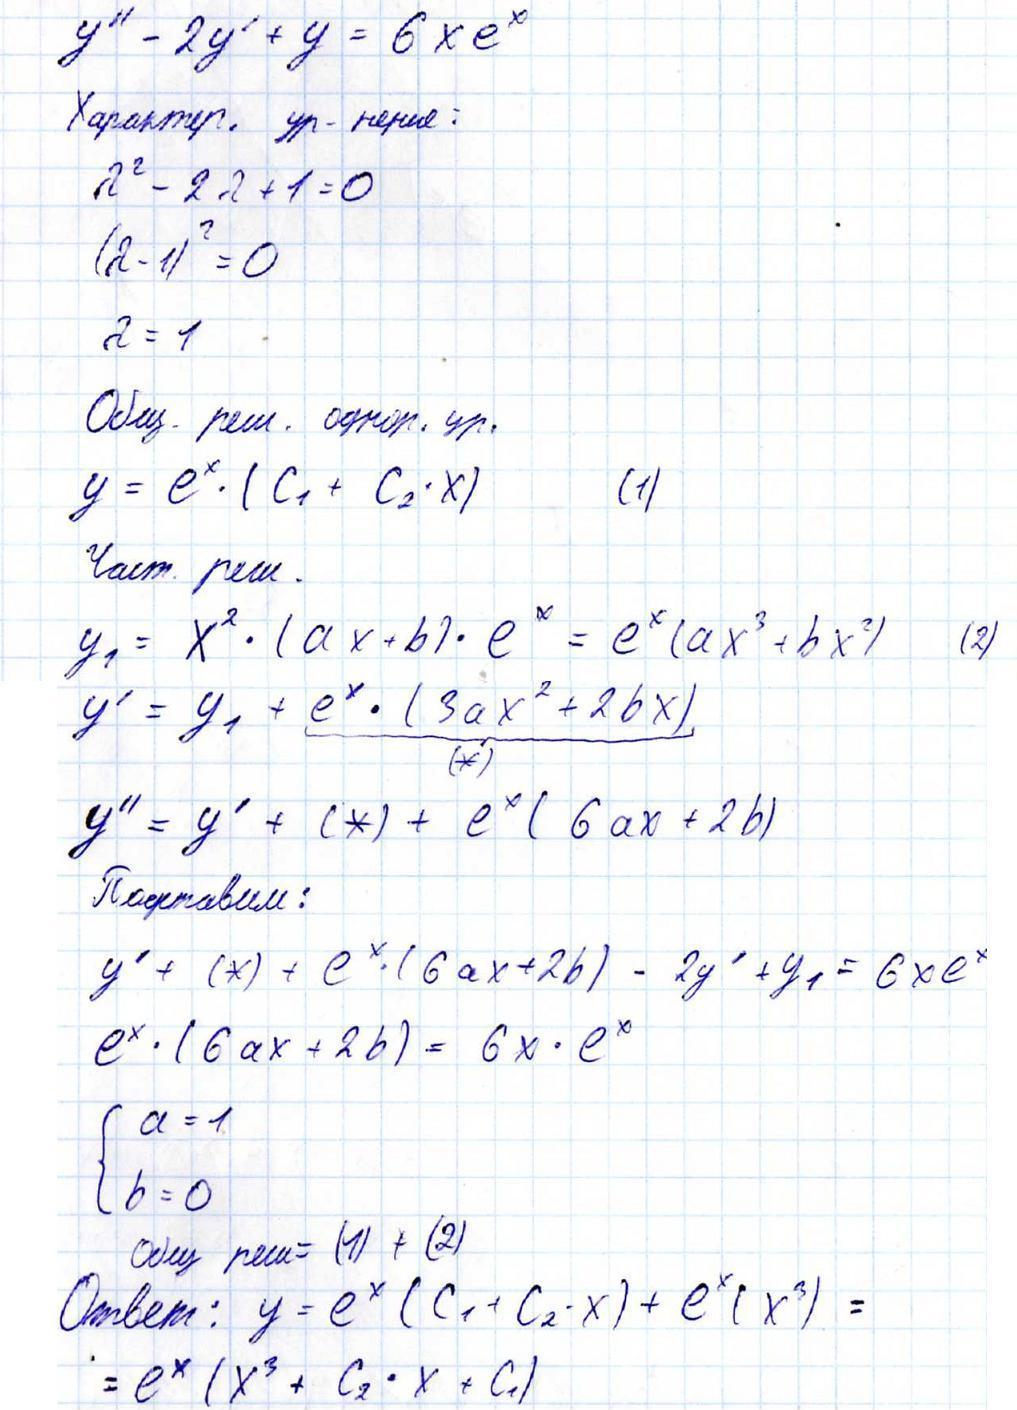 y'' - 2y' + y = 6xeˣ
Характер. ур-нение:
λ² - 2λ + 1 = 0
(λ-1)² = 0
λ = 1
Общ. реш. однор. ур.
y = eˣ·(C₁ + C₂·x) (1)
Част. реш.
y₁ = x²·(ax+b)·eˣ = eˣ(ax³+bx²) (2)
y' = y₁ + eˣ·(3ax²+2bx)
(*)
y'' = y' + (*) + eˣ(6ax+2b)
Подставим:
y' + (*) + eˣ·(6ax+2b) - 2y' + y₁ = 6xeˣ
eˣ·(6ax+2b) = 6x·eˣ
{ a = 1
b = 0
Общ реш = (1) + (2)
Ответ: y = eˣ(C₁+C₂·x) + eˣ(x³) =
= eˣ(x³ + C₂·x + C₁)